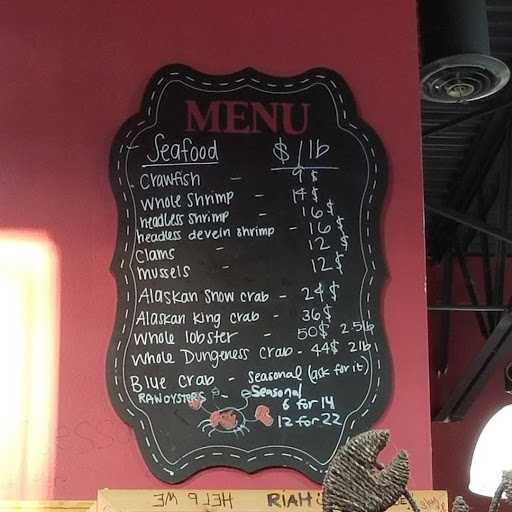 MENU
Seafood $/lb
Crawfish - 9$
Whole Shrimp - 14$
headless shrimp - 16$
headless devein shrimp - 16$
Clams - 12$
Mussels - 12$
Alaskan Snow crab - 24$
Alaskan King crab - 36$
Whole lobster - 50$ 2.5lb
Whole Dungeness Crab - 44$ 2lb
Blue Crab - seasonal (ask for it)
RAW OYSTERS - Seasonal
6 for 14
12 for 22
WE HELP RIAH